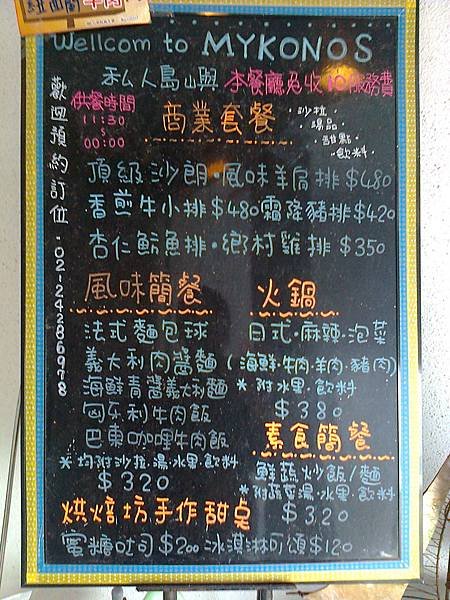 Wellcom to MYKONOS
私人島嶼 本餐廳免收10%服務費
歡迎預約訂位·02-24286978
供餐時間
11:30
~
00:00
商業套餐
·沙拉
·湯品
·甜點
·飲料
頂級沙朗·風味羊肩排$480
香煎牛小排$480霜降豬排$420
杏仁魴魚排·鄉村雞排$350
風味簡餐
法式麵包球
義大利肉醬麵
海鮮青醬義大利麵
匈牙利牛肉飯
巴東咖哩牛肉飯
*均附沙拉·湯·水果·飲料
$320
火鍋
日式·麻辣·泡菜
(海鮮·牛肉·羊肉·豬肉)
*附水果·飲料
$380
素食簡餐
鮮蔬炒飯/麵
*附蔬菜湯·水果·飲料
$320
烘焙坊手作甜點
蜜糖吐司$200冰淇淋可頌$120